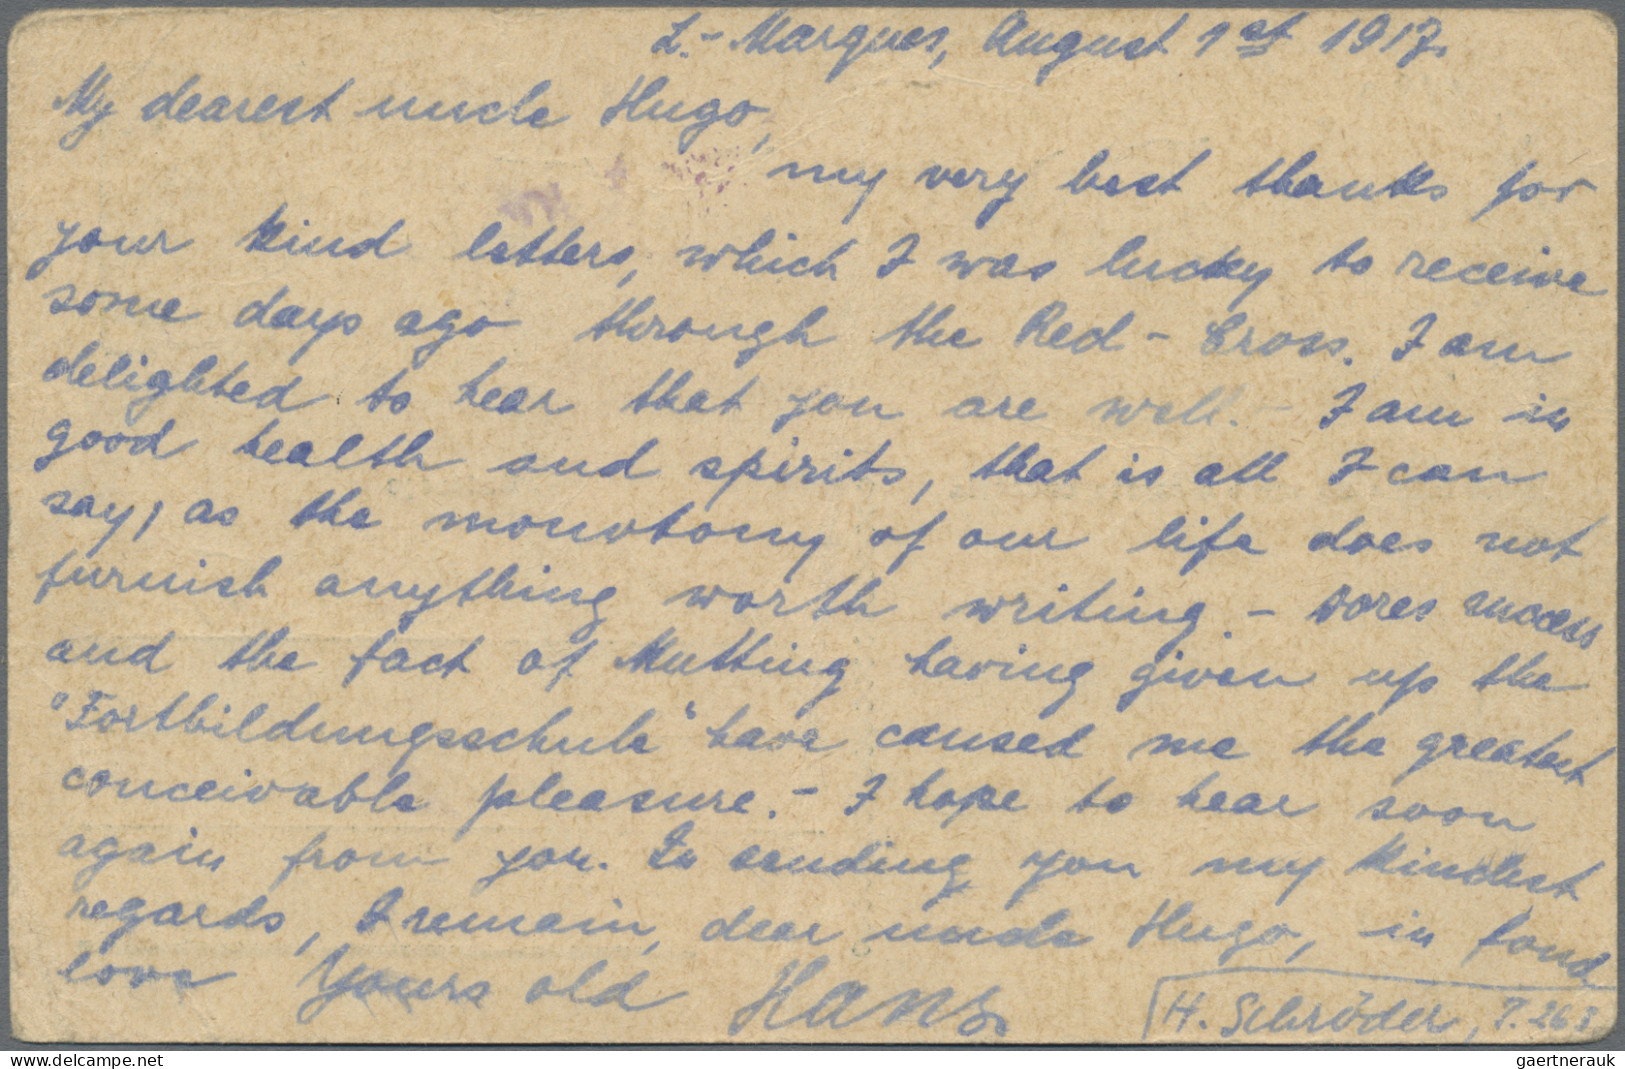 L.- Marques, August 1st 1917.
My dearest uncle Hugo,
my very best thanks for
your kind letters, which I was lucky to receive
some days ago through the Red-Cross. I am
delighted to hear that you are well.- I am in
good health and spirits, that is all I can
say, as the monotony of our life does not
furnish anything worth writing. - Dores success
and the fact of Mutting having given up the
"Fortbildungsschule" have caused me the greatest
conceivable pleasure.- I hope to hear soon
again from you. In sending you my kindest
regards, I remain, dear uncle Hugo, in fond
love Yours old Hans.
H. Schröder,
gaertnerauk.com